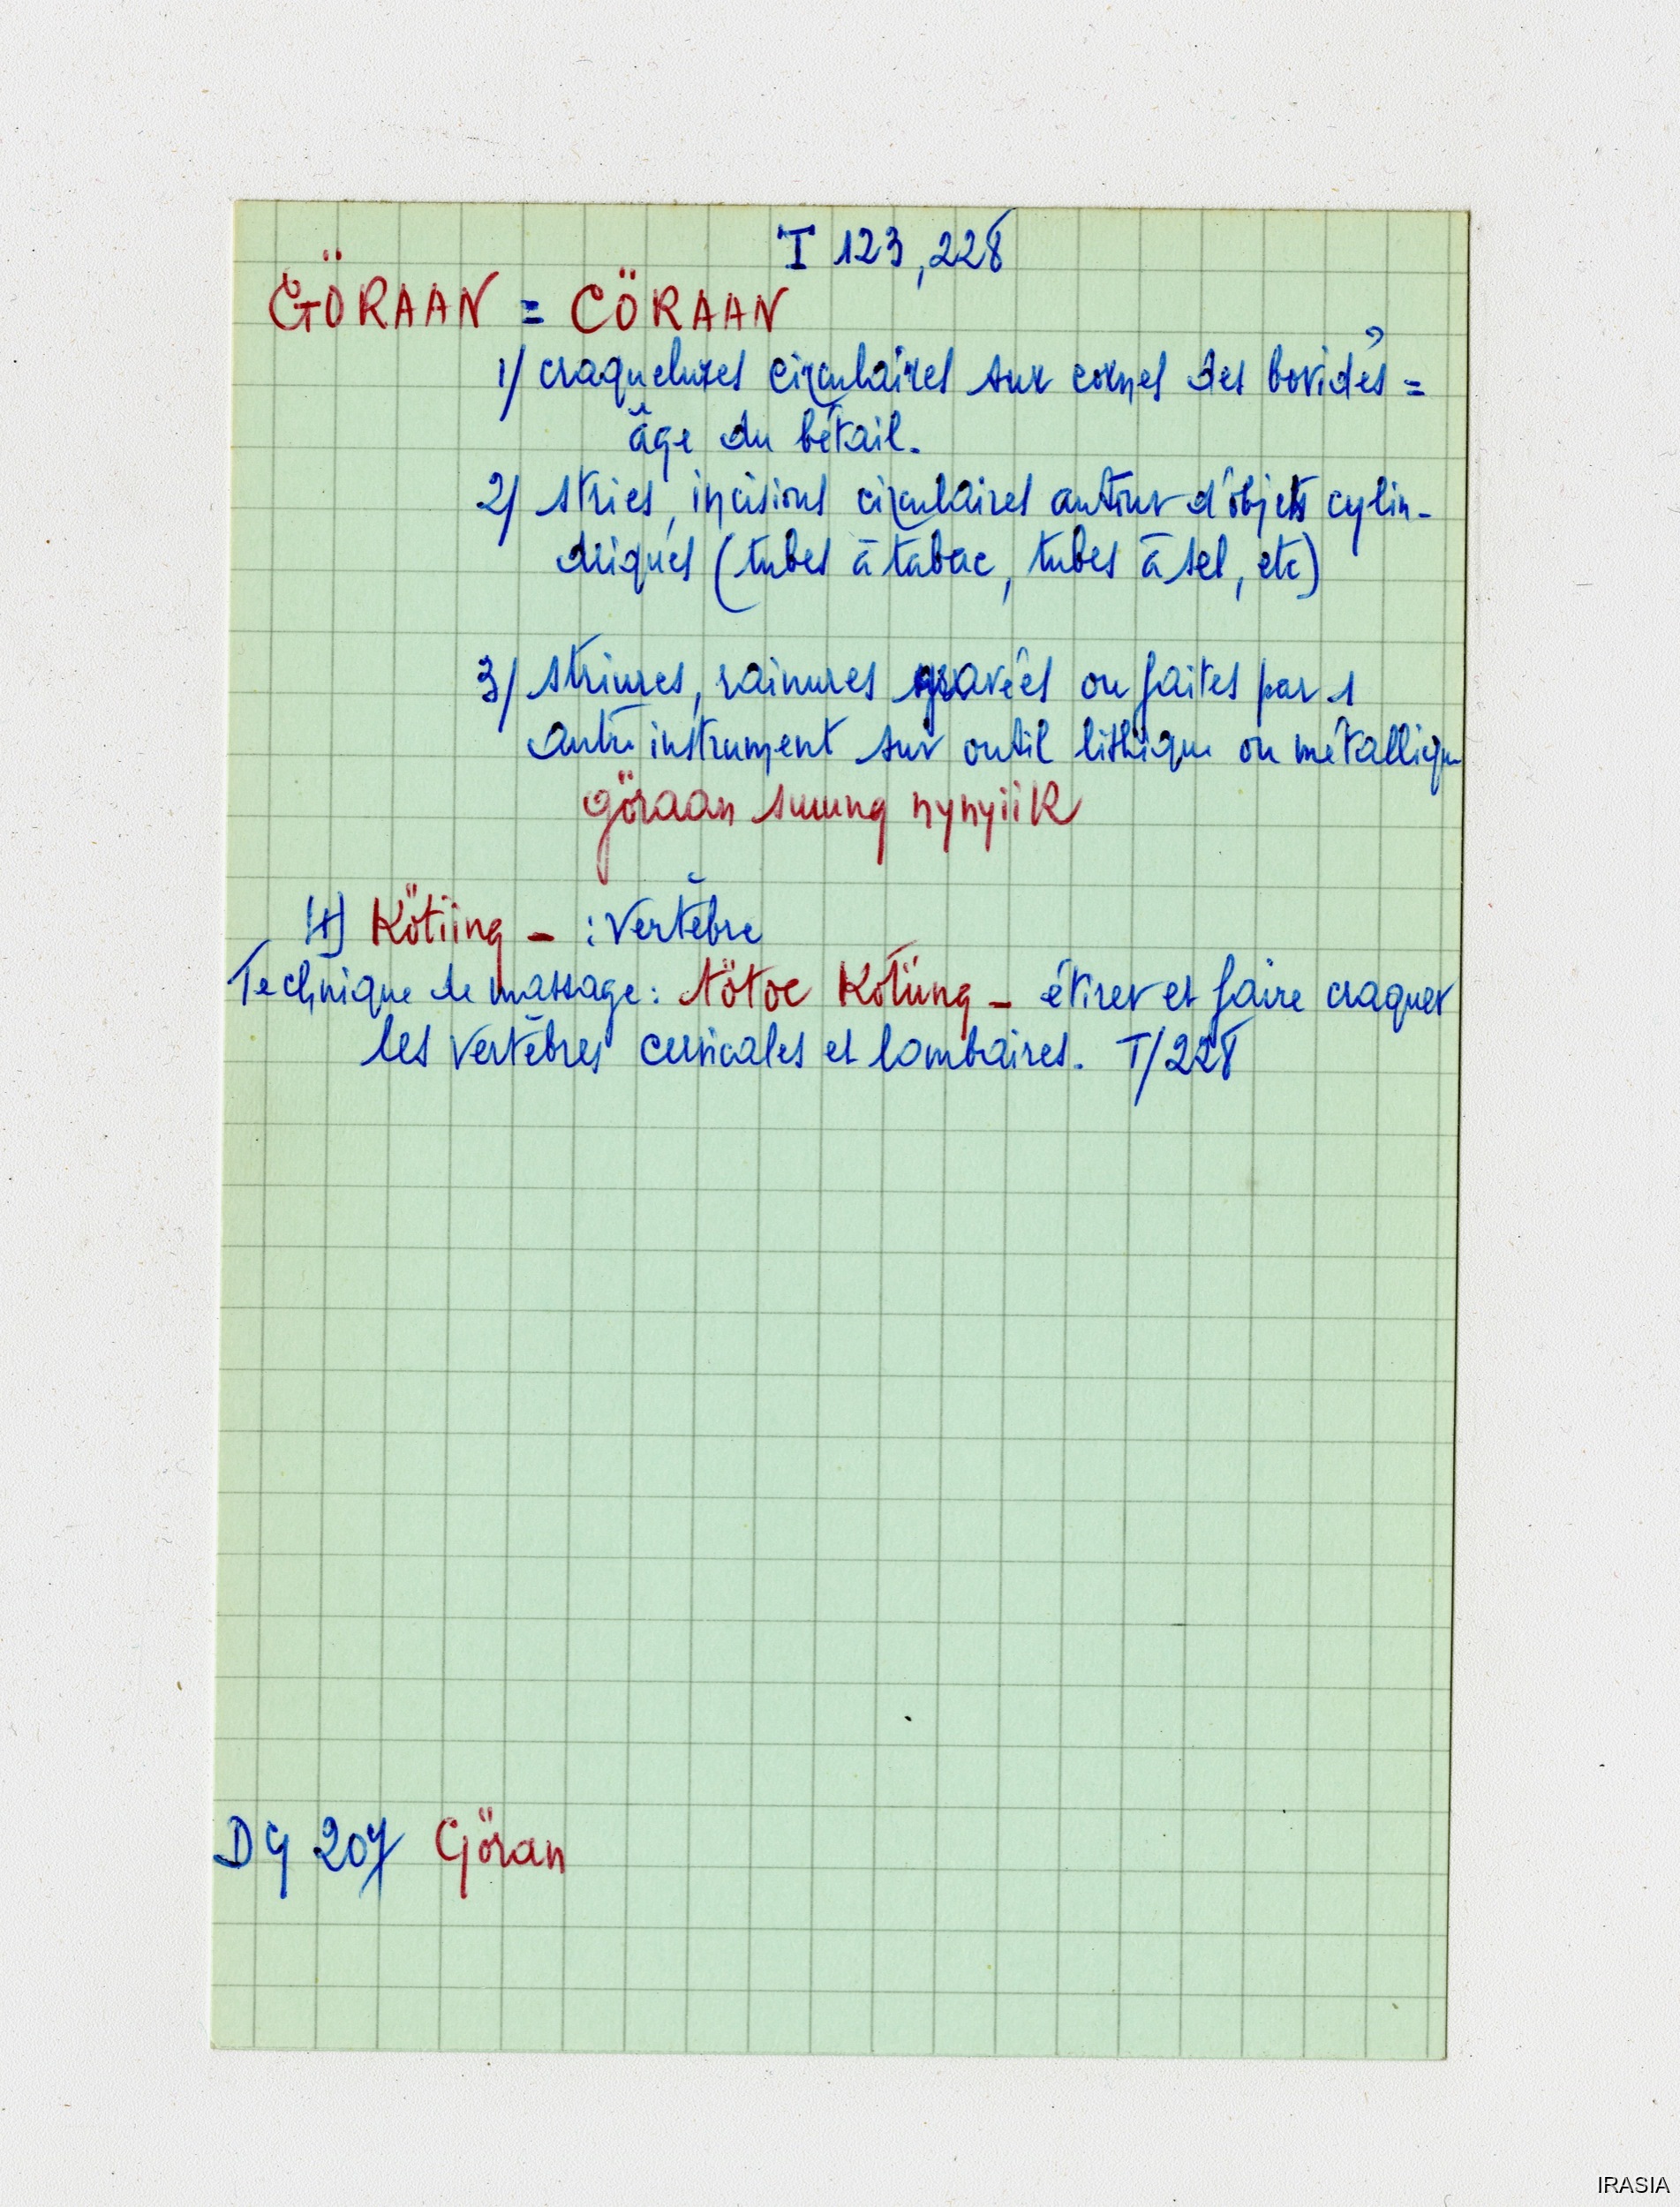 T 123, 228
GÖRAAN = CÖRAAN
1/ craquelures circulaires sur cornes des bovidés =
âge du bétail.
2/ stries, incisions circulaires autour d'objets cylin-
driques (tubes à tabac, tubes à sel, etc)
3/ striures, rainures gravées ou faites par 1
autre instrument sur outil lithique ou métallique
göraan suung nynyiik
Kötiing - : Vertèbre
Technique de massage : tötoe Kötiing - étirer et faire craquer
les vertèbres cervicales et lombaires. T/228
DG 207 Göran
IRASIA